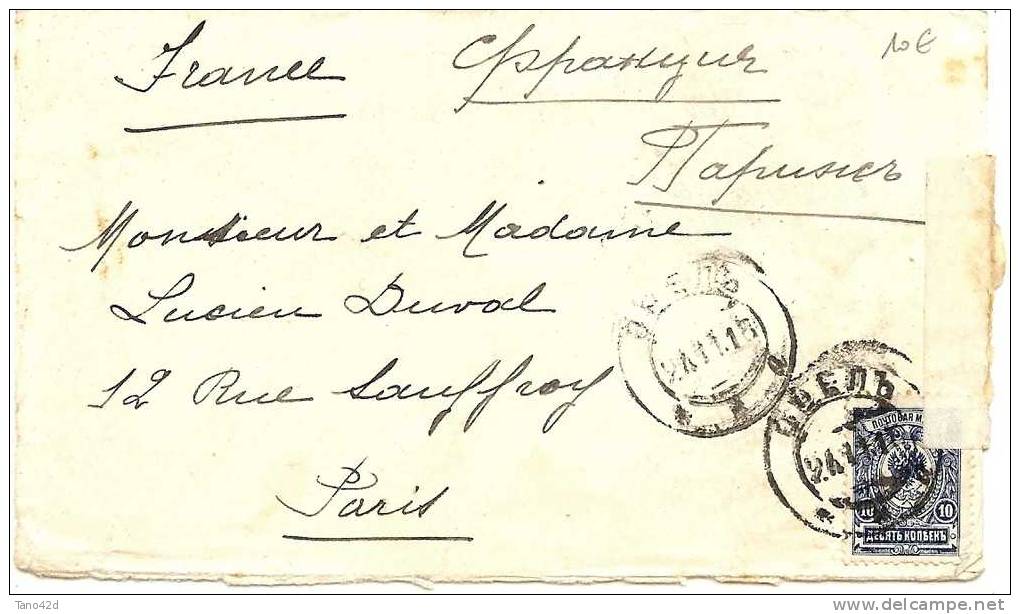 France Франция
10€
Парижъ
Monsieur et Madame
Lucien Duval
12 Rue Sauffroy
Paris
ОРЕЛЪ
24.11.15
ОРЕЛЪ
24.11.15
ПОЧТОВАЯ М
10 10
ДЕСЯТЬ КОПѢЕКЪ
Tano42d
©delcampe.net